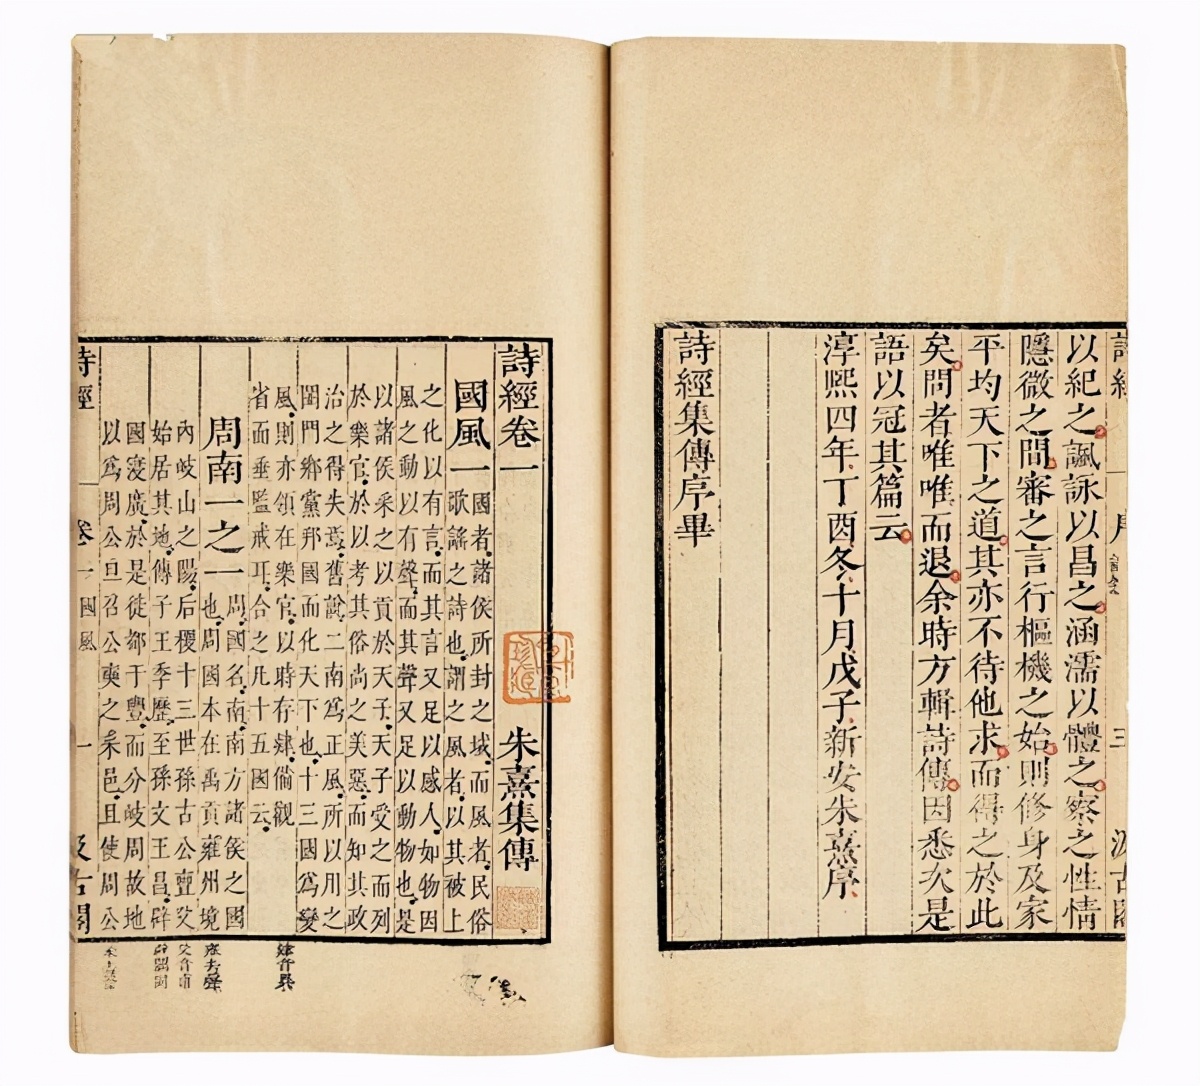 詩經
序
三
汲古閣
以紀之諷詠以昌之涵濡以體之察之性情
隱微之間審之言行樞機之始則修身及家
平均天下之道其亦不待他求而得之於此
矣問者唯唯而退余時方輯詩傳因悉次是
語以冠其篇云
淳熙四年丁酉冬十月戊子新安朱熹序
詩經集傳序畢
詩經卷一
朱熹集傳
國風一
國者諸侯所封之域而風者民俗
歌謠之詩也謂之風者以其被上
之化以有言而其言又足以感人如物因
風之動以有聲而其聲又足以動物也是
以諸侯采之以貢於天子天子受之而列
於樂官於以考其俗尚之美惡而知其政
治之得失焉舊說二南爲正風所以用之
閨門鄉黨邦國而化天下也十三國爲變
風則亦領在樂官以時存肄備觀
省而垂監戒耳合之凡十五國云
肄音異
周南一之一
周國名南南方諸侯之國
也周國本在禹貢雍州境
內岐山之陽后稷十三世孫古公亶父
始居其地傳子王季歷至孫文王昌辟
國寖廣於是徙都于豐而分岐周故地
以爲周公旦召公奭之采邑且使周公
雍去聲
父音甫
詩經
卷一
國風
一
汲古閣